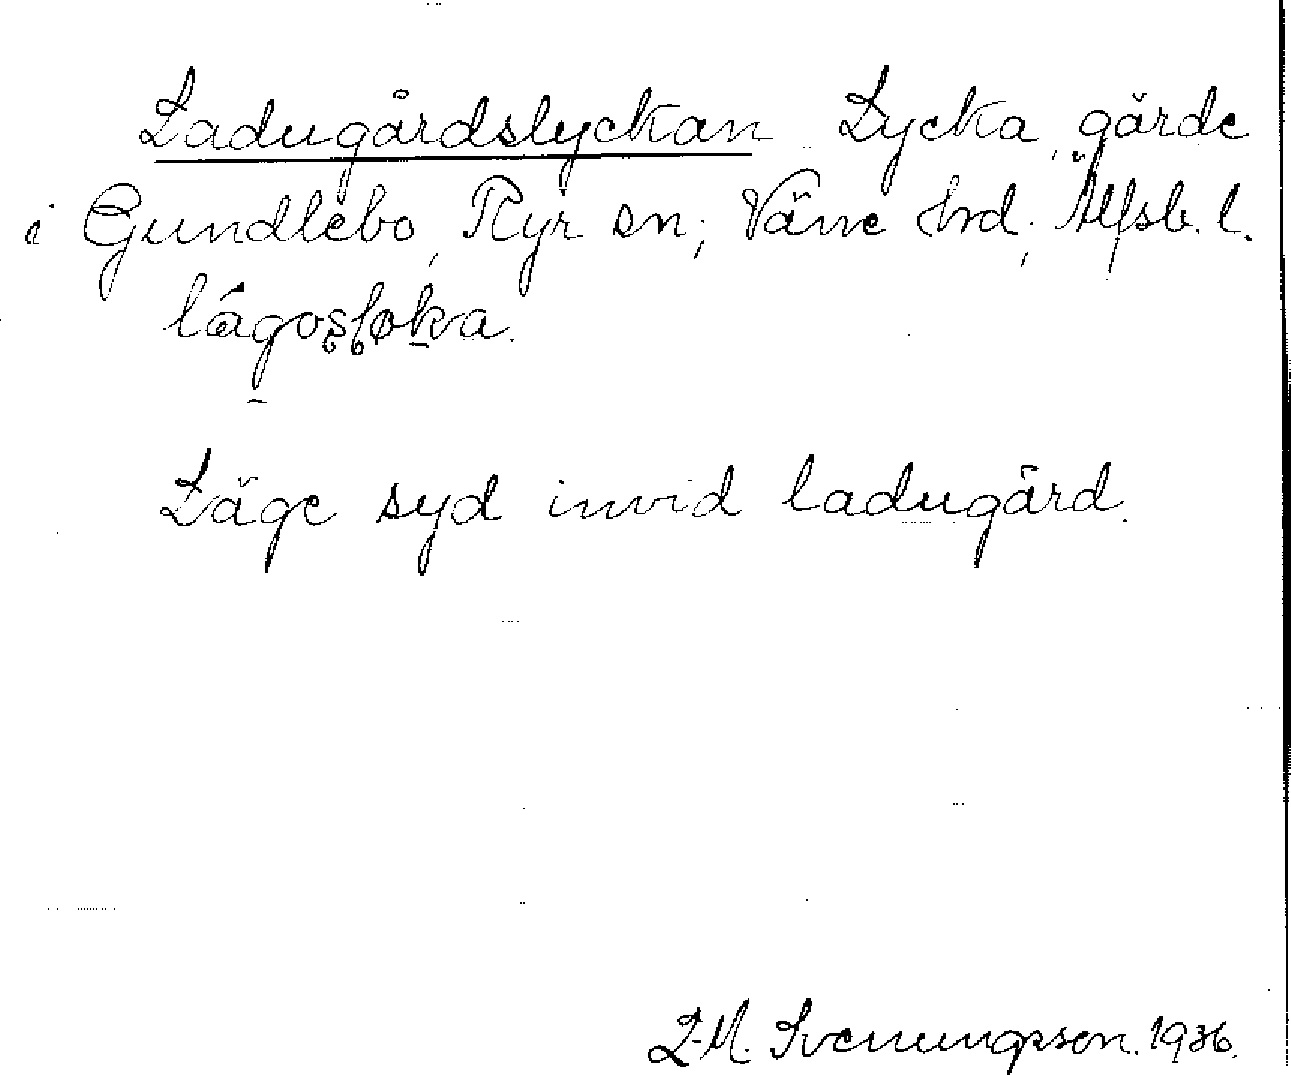 Ladugårdslyckan Lycka, gärde
i Gundlebo, Ryr sn; Väne hrd; Älfsb. l.
Läge syd invid ladugård.
L.M. Svenungsson. 1936.